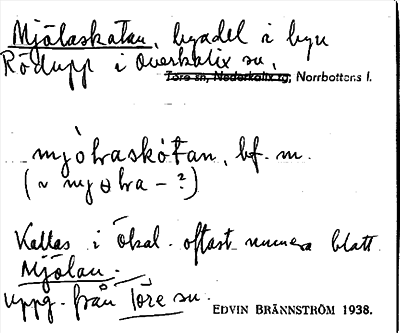 Mjölaskatan, byadel i byn
Rödupp i Överkalix sn,
Töre sn, Nederkalix tg, Norrbottens l.
mjòlraskótan, bf. m.
(~ mjɵlra - ?)
Kallas i ökal. oftast numera blott
Mjölan.
uppg. från Töre sn.
EDVIN BRÄNNSTRÖM 1938.